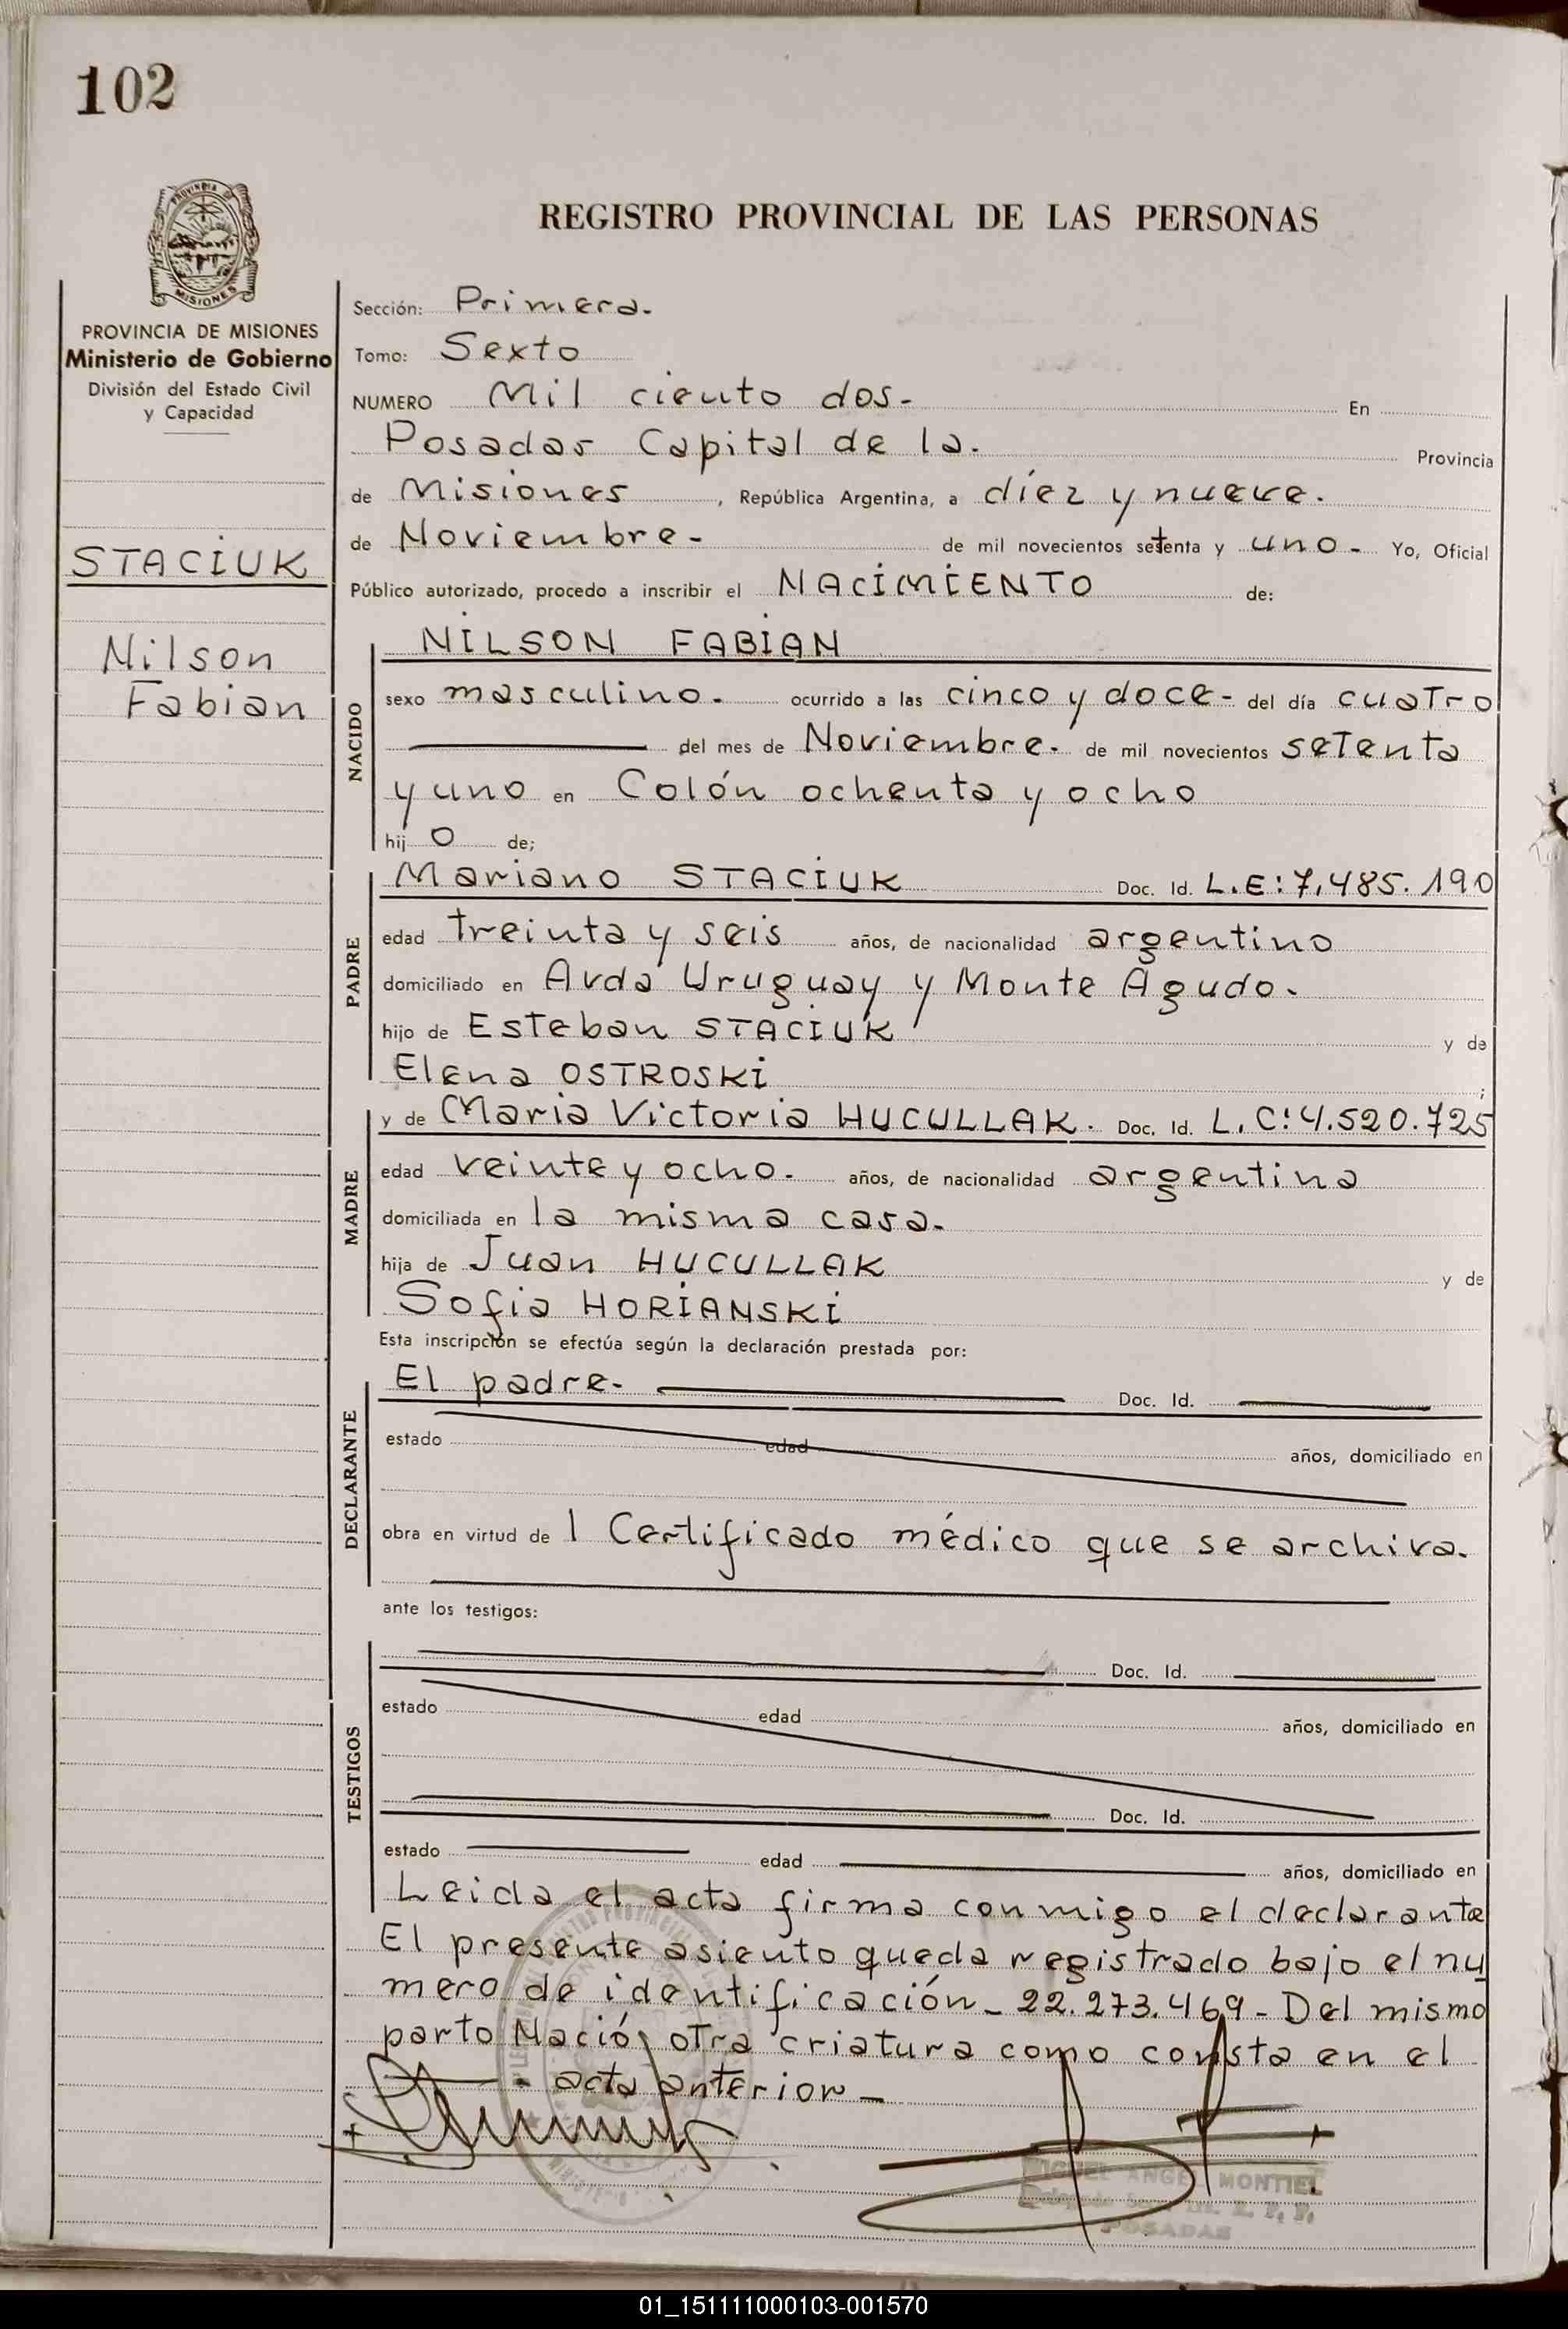 102
PROVINCIA DE
MISIONES
REGISTRO PROVINCIAL DE LAS PERSONAS
PROVINCIA DE MISIONES
Ministerio de Gobierno
División del Estado Civil
y Capacidad
STACIUK
Nilson
Fabian
Sección: Primera.
Tomo: Sexto
NUMERO Mil ciento dos- En
Posadas Capital de la. Provincia
de Misiones, República Argentina, a diez y nueve.
de Noviembre- de mil novecientos setenta y uno- Yo, Oficial
Público autorizado, procedo a inscribir el NACIMIENTO de:
NACIDO
NILSON FABIAN
sexo masculino- ocurrido a las cinco y doce- del día cuatro
del mes de Noviembre- de mil novecientos setenta
y uno en Colón ochenta y ocho
hijo de;
PADRE
Mariano STACIUK Doc. Id. L.E:7.485.190
edad treinta y seis años, de nacionalidad argentino
domiciliado en Avda Uruguay y Monte Agudo.
hijo de Esteban STACIUK y de
Elena OSTROSKI ;
MADRE
y de Maria Victoria HUCULLAK. Doc. Id. L.C:4.520.725
edad veinte y ocho- años, de nacionalidad argentina
domiciliada en la misma casa-
hija de Juan HUCULLAK y de
Sofia HORIANSKI
Esta inscripción se efectúa según la declaración prestada por:
DECLARANTE
El padre- Doc. Id.
estado edad años, domiciliado en
obra en virtud de 1 Certificado médico que se archiva.
ante los testigos:
TESTIGOS
Doc. Id.
estado edad años, domiciliado en
Doc. Id.
estado edad años, domiciliado en
Leida el acta firma conmigo el declarante
El presente asiento queda registrado bajo el nu
mero de identificación- 22.273.469- Del mismo
parto Nació otra criatura como consta en el
acta anterior-
MIGUEL ANGEL MONTIEL
POSADAS
01_151111000103-001570